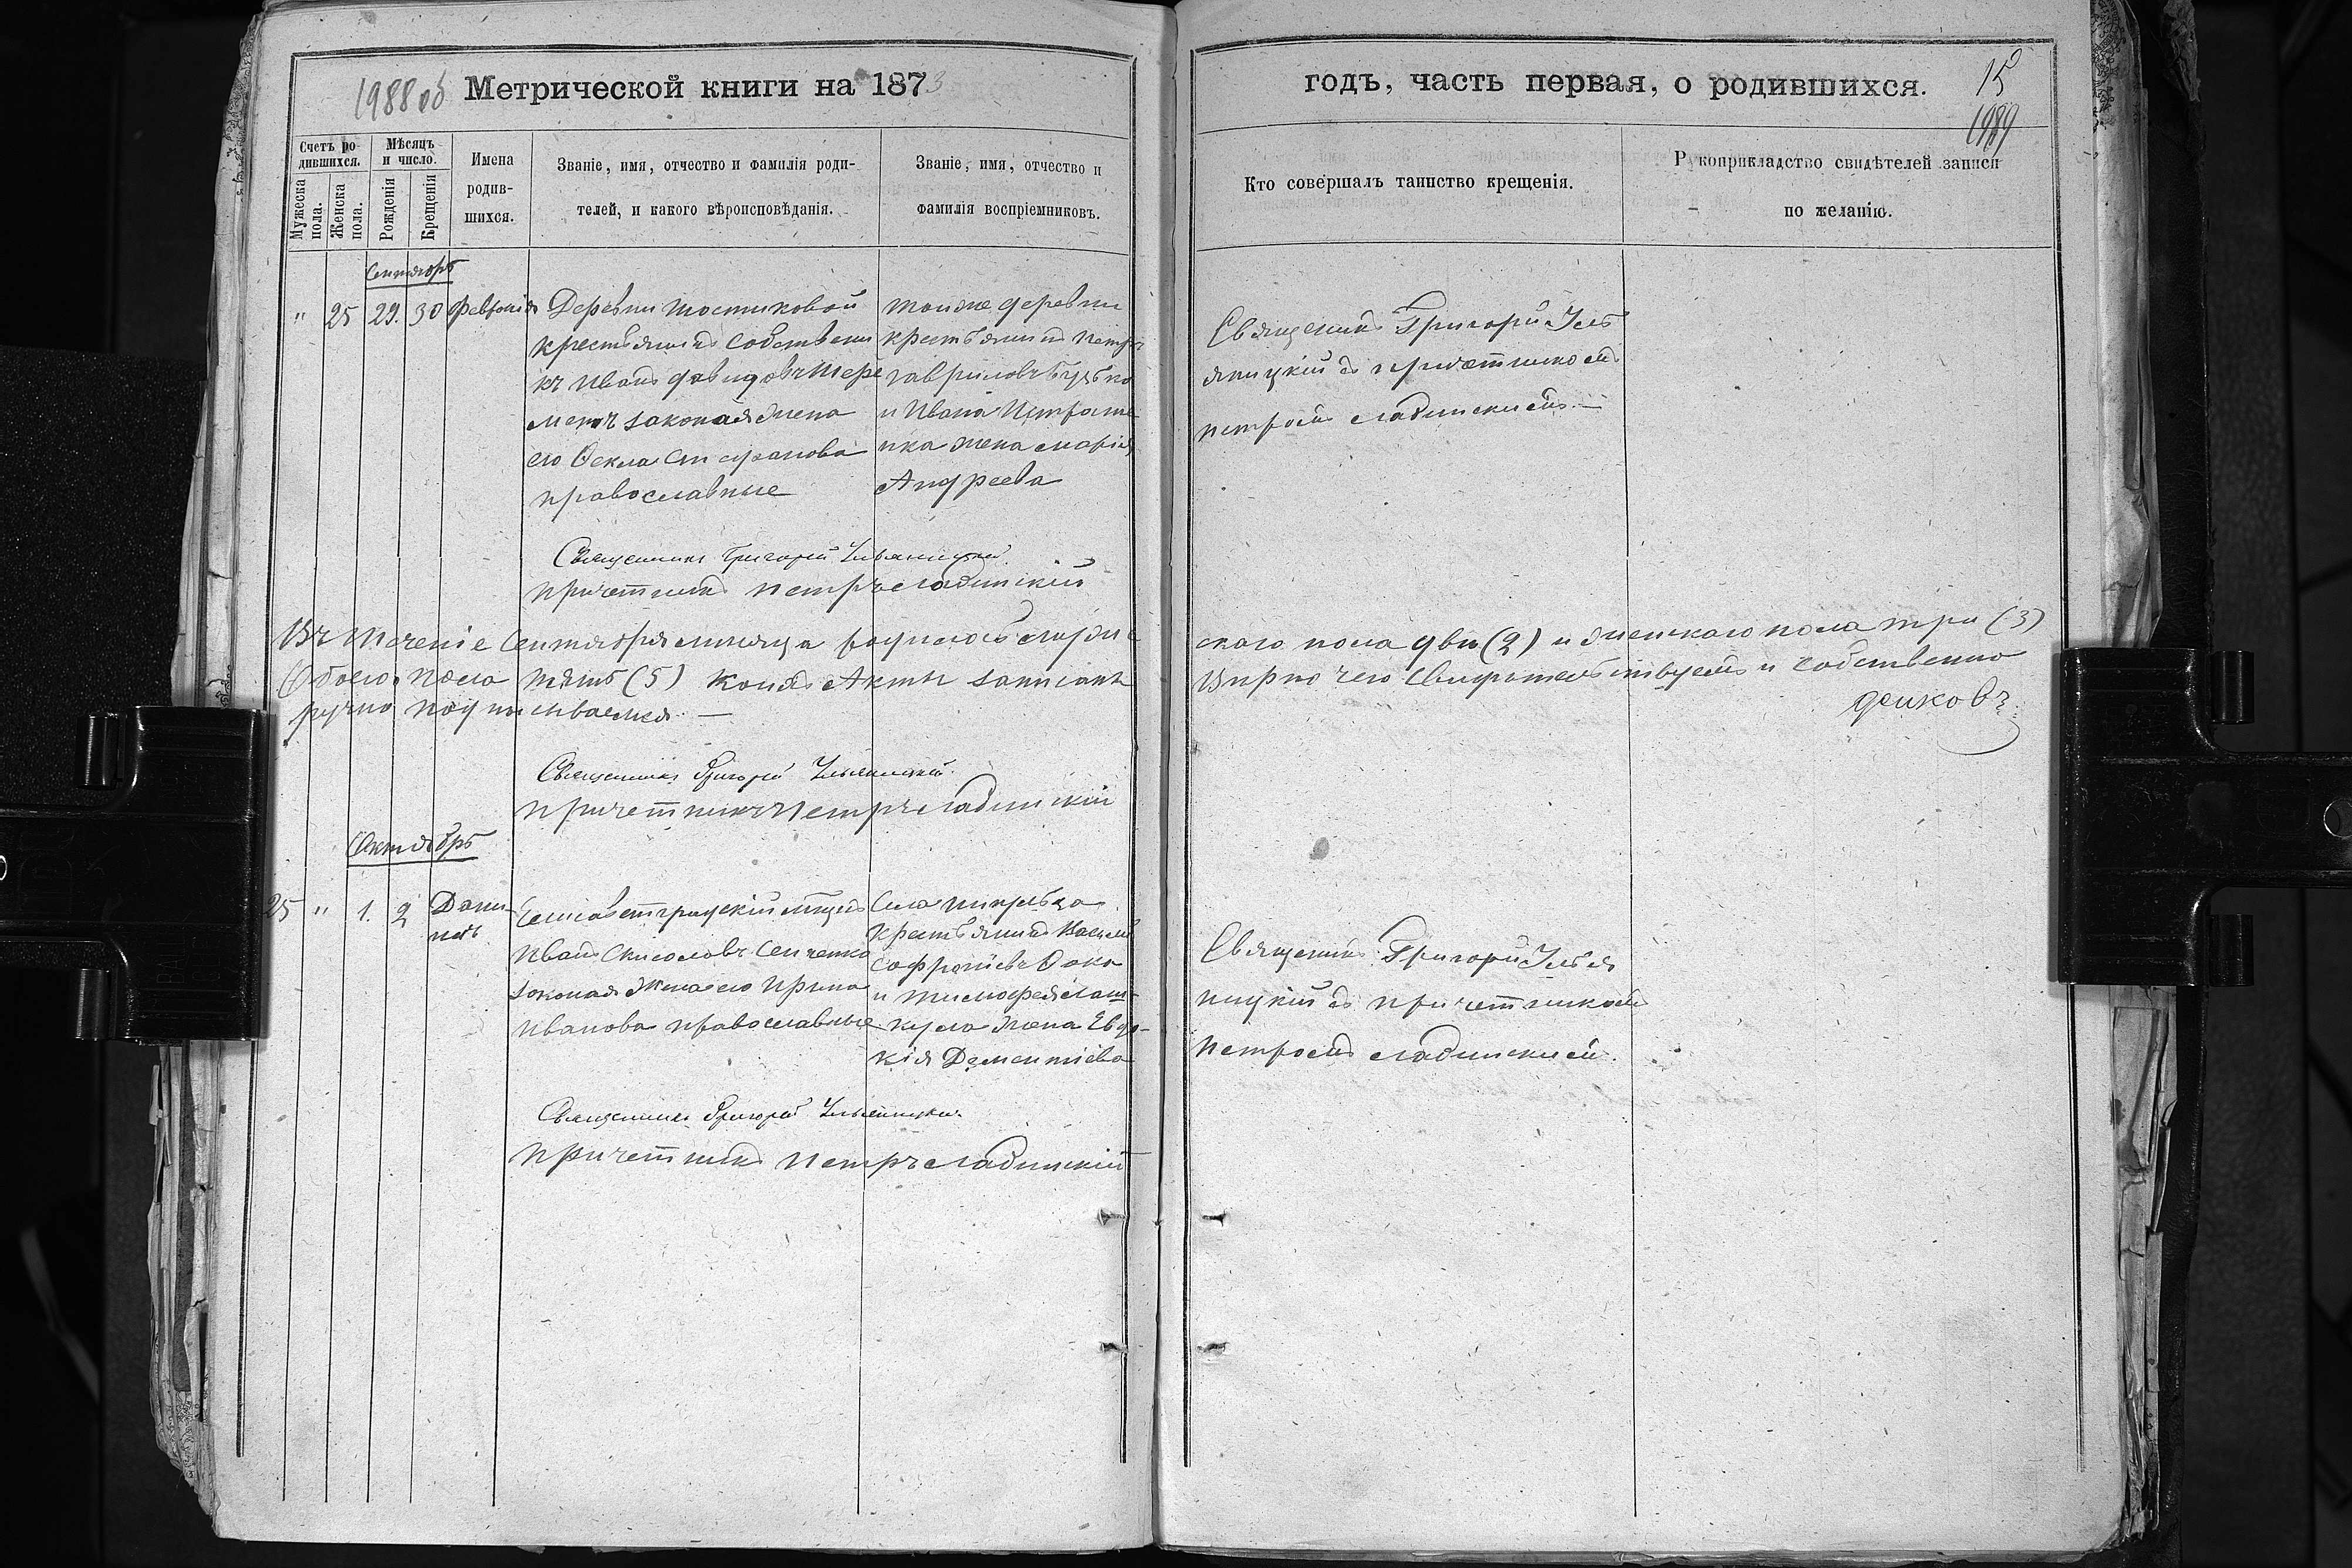 1988 об Метрической книги на 1873
годъ, часть первая, о родившихся. 15
1989
Счетъ родившихся.
Мѣсяцъ и число.
Мужеска пола.
Женска пола.
Рожденія
Крещенія
Имена родившихся.
Званіе, имя, отчество и фамилія родителей, и какого вѣроисповѣданія.
Званіе, имя, отчество и фамилія воспріемниковъ.
Кто совершалъ таинство крещенія.
Рукоприкладство свидѣтелей записи по желанію.
Сентябрь
" 25 29. 30 Февронія
Деревни
крестьянинъ собственни
къ Иванъ Давидовъ Шере
меть законая жена
его Ѳекла Стефанова
православные
тойже деревни
крестьянинъ Петръ
Гавриловъ
и Ивана
нка жена Марія
Андреева
Священикъ Григорій Иль
яницкій съ причетникомъ
Петромъ Сладинскимъ.—
Священникъ Григорій Ильяницкій
Причетникъ Петръ Сладинскій
Въ теченіе сентября мѣсяца родилось муже
скаго пола два (2) и женскаго пола три (3)
Обоего пола пять (5) коихъ акты записаны
вѣрно чего свидѣтельствуемъ и собственно
ручно подписываемся.—
Священникъ Григорій Ильяницкій.
Причетникъ Петръ Сладинскій
Октябрь
25 " 1. 2 Дани-
илъ
Елисаветградскій мѣщан
Иванъ Сенченко
законая жена его Ирина
Иванова православные
Села
крестьянинъ Василій
Софроніевъ
и Тимофея
жена Евдо-
кія Дементіева
Священикъ Григорій Илья
ницкій съ причетникомъ
Петромъ Сладинскимъ.
Священникъ Григорій Ильяницкій.
Причетникъ Петръ Сладинскій